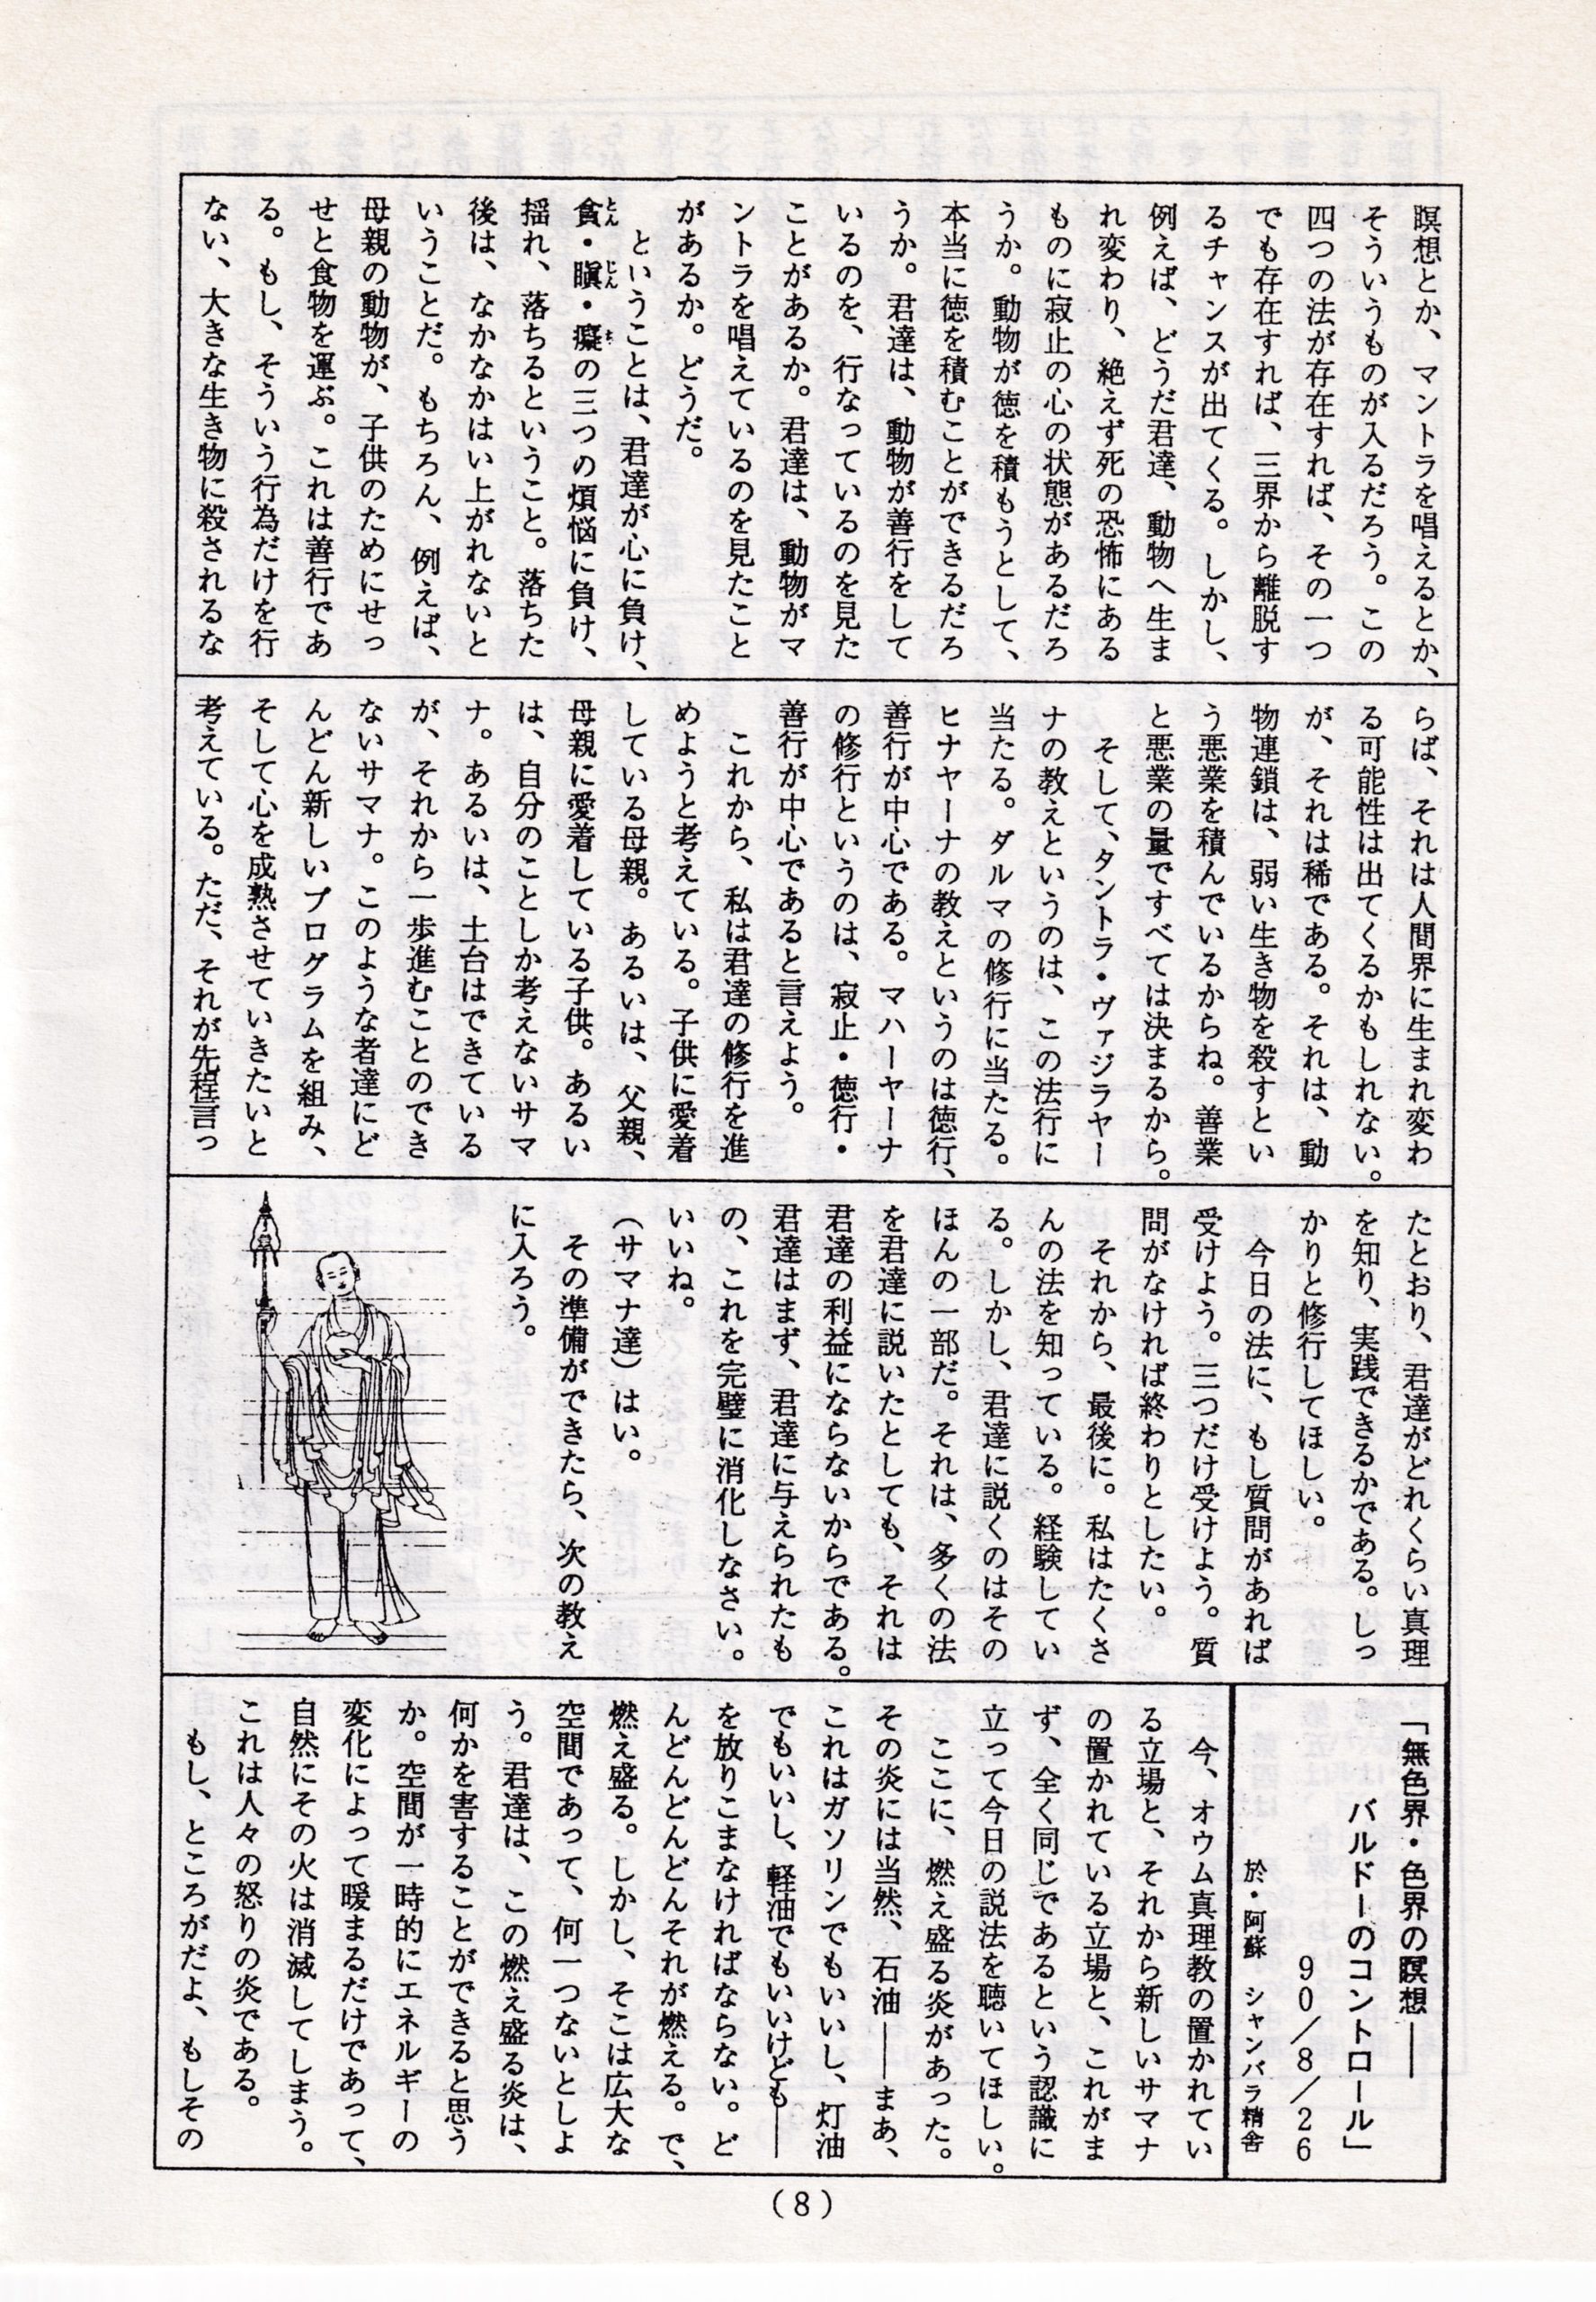 瞑想とか、マントラを唱えるとか、
そういうものが入るだろう。この
四つの法が存在すれば、その一つ
でも存在すれば、三界から離脱す
るチャンスが出てくる。しかし、
例えば、どうだ君達、動物へ生ま
れ変わり、絶えず死の恐怖にある
ものに寂止の心の状態があるだろ
うか。動物が徳を積もうとして、
本当に徳を積むことができるだろ
うか。君達は、動物が善行をして
いるのを、行なっているのを見た
ことがあるか。君達は、動物がマ
ントラを唱えているのを見たこと
があるか。どうだ。
ということは、君達が心に負け、
貪・瞋・癡の三つの煩悩に負け、
揺れ、落ちるということ。落ちた
後は、なかなかはい上がれないと
いうことだ。もちろん、例えば、
母親の動物が、子供のためにせっ
せと食物を運ぶ。これは善行であ
る。もし、そういう行為だけを行
ない、大きな生き物に殺されるな
らば、それは人間界に生まれ変わ
る可能性は出てくるかもしれない。
が、それは稀である。それは、動
物連鎖は、弱い生き物を殺すとい
う悪業を積んでいるからね。善業
と悪業の量ですべては決まるから。
そして、タントラ・ヴァジラヤー
ナの教えというのは、この法行に
当たる。ダルマの修行に当たる。
ヒナヤーナの教えというのは徳行、
善行が中心である。マハーヤーナ
の修行というのは、寂止・徳行・
善行が中心であると言えよう。
これから、私は君達の修行を進
めようと考えている。子供に愛着
している母親。あるいは、父親、
母親に愛着している子供。あるい
は、自分のことしか考えないサマ
ナ。あるいは、土台はできている
が、それから一歩進むことのでき
ないサマナ。このような者達にど
んどん新しいプログラムを組み、
そして心を成熟させていきたいと
考えている。ただ、それが先程言っ
たとおり、君達がどれくらい真理
を知り、実践できるかである。しっ
かりと修行してほしい。
今日の法に、もし質問があれば
受けよう。三つだけ受けよう。質
問がなければ終わりとしたい。
それから、最後に。私はたくさ
んの法を知っている。経験してい
る。しかし、君達に説くのはその
ほんの一部だ。それは、多くの法
を君達に説いたとしても、それは
君達の利益にならないからである。
君達はまず、君達に与えられたも
の、これを完璧に消化しなさい。
いいね。
（サマナ達）はい。
その準備ができたら、次の教え
に入ろう。
「無色界・色界の瞑想――
バルドーのコントロール」
90/8/26
於・阿蘇 シャンバラ精舎
今、オウム真理教の置かれてい
る立場と、それから新しいサマナ
の置かれている立場と、これがま
ず、全く同じであるという認識に
立って今日の説法を聴いてほしい。
ここに、燃え盛る炎があった。
その炎には当然、石油――まあ、
これはガソリンでもいいし、灯油
でもいいし、軽油でもいいけども――
を放りこまなければならない。ど
んどんどんどんそれが燃える。で、
燃え盛る。しかし、そこは広大な
空間であって、何一つないとしよ
う。君達は、この燃え盛る炎は、
何かを害することができると思う
か。空間が一時的にエネルギーの
変化によって暖まるだけであって、
自然にその火は消滅してしまう。
これは人々の怒りの炎である。
もし、ところがだよ、もしその
(8)